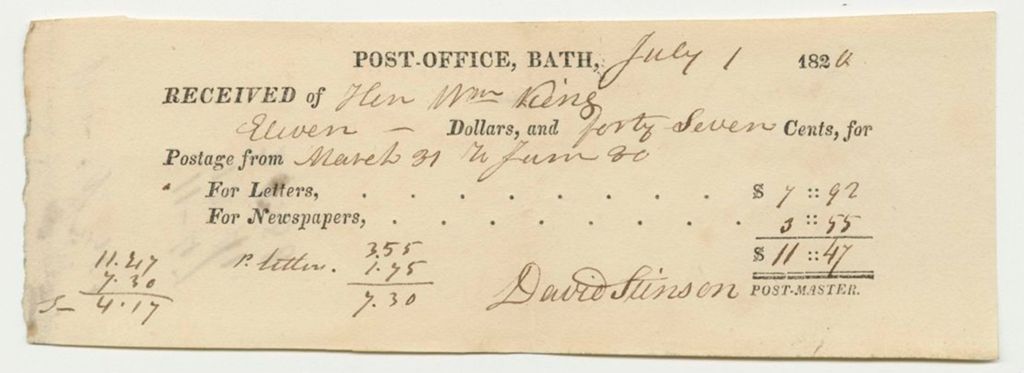 POST-OFFICE, BATH, July 1 182
RECEIVED of Hon Wm King
Eleven — Dollars, and forty Seven Cents, for
Postage from March 31 to June 30
For Letters, . . . . . . . . . $ 7 :: 92
For Newspapers, . . . . . . . . . 3 :: 55
$ 11 :: 47
David Stinson POST-MASTER.
11.47
7.30
4.17
P. letter. 3.55
1.75
7.30